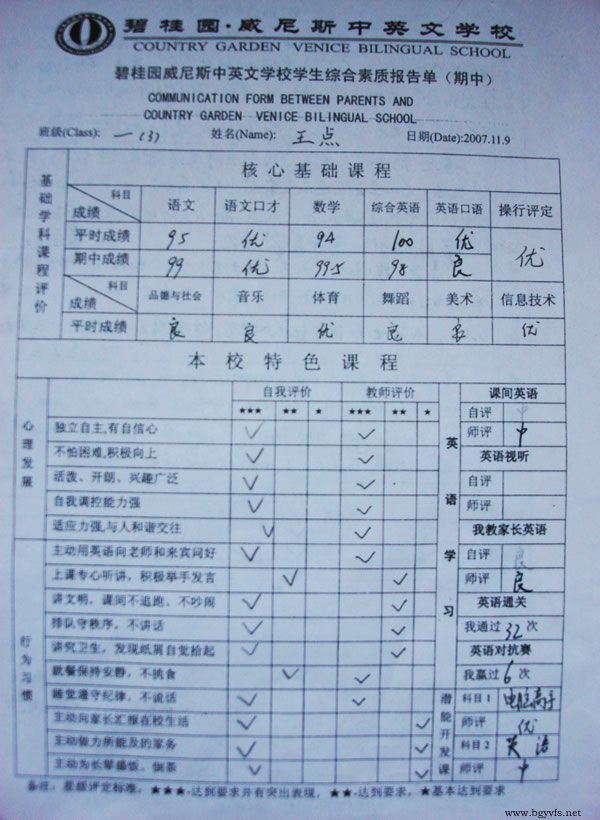 碧桂园·威尼斯中英文学校
COUNTRY GARDEN VENICE BILINGUAL SCHOOL
碧桂园威尼斯中英文学校学生综合素质报告单（期中）
COMMUNICATION FORM BETWEEN PARENTS AND
COUNTRY GARDEN VENICE BILINGUAL SCHOOL
班级(Class): 一(3) 姓名(Name): 王点 日期(Date):2007.11.9
基础学科课程评价
核心基础课程
科目 成绩 语文 语文口才 数学 综合英语 英语口语 操行评定
平时成绩 95 优 94 100 优 优
期中成绩 99 优 99.5 98 良
科目 成绩 品德与社会 音乐 体育 舞蹈 美术 信息技术
平时成绩 良 良 优 良 良 优
本校特色课程
自我评价 教师评价
★★★ ★★ ★ ★★★ ★★ ★
心理发展
独立自主,有自信心
不怕困难,积极向上
活泼、开朗、兴趣广泛
自我调控能力强
适应力强,与人和谐交往
行为习惯
主动用英语向老师和来宾问好
上课专心听讲，积极举手发言
讲文明，课间不追跑、不吵闹
排队守秩序，不讲话
讲究卫生，发现纸屑自觉拾起
就餐保持安静，不挑食
睡觉遵守纪律，不说话
主动向家长汇报在校生活
主动做力所能及的家务
主动为长辈盛饭、倒茶
英语学习
课间英语
自评 中
师评 中
英语视听
自评
师评
我教家长英语
自评 良
师评 良
英语通关
我通过 32 次
英语对抗赛
我赢过 6 次
潜能开发课
科目1 电脑高手
师评 优
科目2 英语
师评 中
备注：星级评定标准：★★★-达到要求并有突出表现，★★-达到要求，★基本达到要求
www.bgyvfs.net